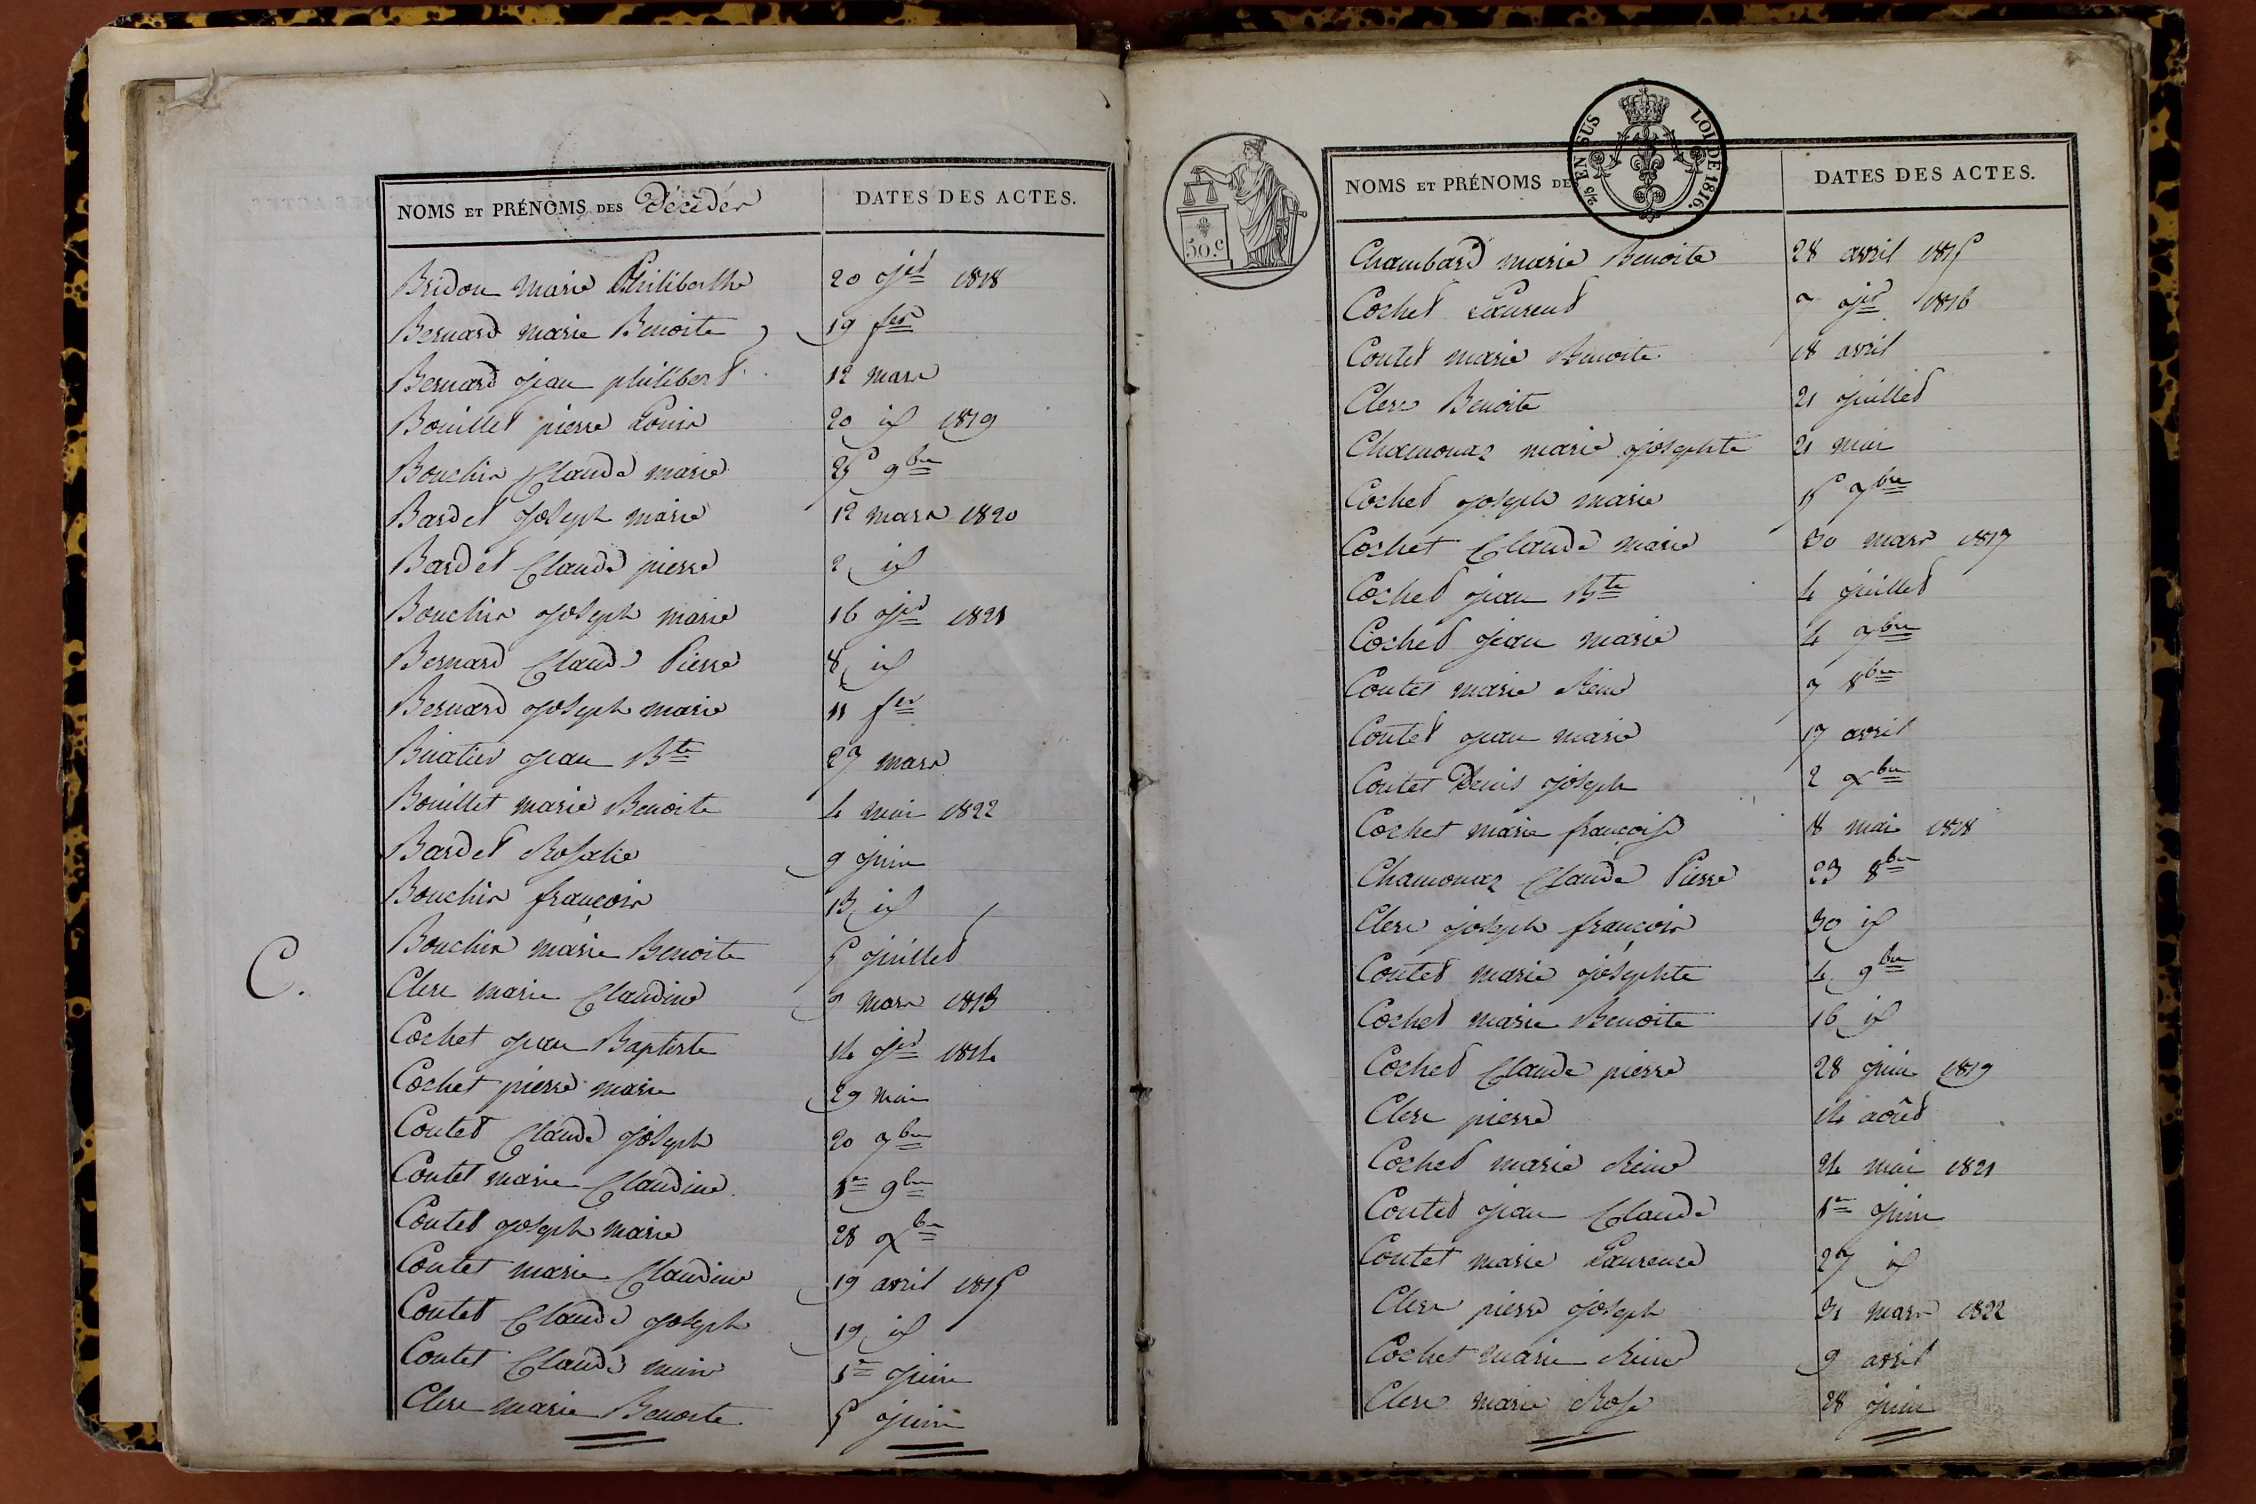 NOMS ET PRÉNOMS DES Décédés DATES DES ACTES.
Bridon marie Philiberthe 20 jer 1818
Bernard marie Benoite 19 fer
Bernard jean philibert 12 mars
Bouillet pierre Louis 20 id 1819
Bouchin Claude marie 25 9bre
Bardet joseph marie 12 mars 1820
Bardet Claude pierre 2 id
Bouchin joseph marie 16 jer 1821
Bernard Claude Pierre 8 id
Bernard joseph marie 11 fer
Buiatier jean Bte 27 mars
Bouillet marie Benoite 4 mai 1822
Bardet Rosalie 9 juin
Bouchin françois 13 id
Bouchin marie Benoite 5 juillet
C.
Clerc marie Claudine 9 mars 1813
Cochet jean Baptiste 14 jer 1814
Cochet pierre marie 29 mai
Coutet Claude joseph 20 7bre
Coutet marie Claudine 1er 9bre
Coutet joseph marie 28 xbre
Coutet marie Claudine 19 avril 1815
Coutet Claude joseph 19 id
Coutet Claude marie 1er juin
Clerc marie Benoite 5 juin
50.c
EN SUS LOI DE 1816.
NOMS ET PRÉNOMS DE DATES DES ACTES.
Chambard marie Benoite 28 avril 1815
Cochet Laurent 7 jer 1816
Coutet marie Benoite 18 avril
Clerc Benoite 21 juillet
Chamonaz marie josephte 21 mai
Cochet joseph marie 15 7bre
Cochet Claude marie 30 mars 1817
Cochet jean Bte 4 juillet
Cochet jean marie 4 7bre
Coutet marie Reine 7 8bre
Coutet jean marie 17 avril
Coutet Denis joseph 2 xbre
Cochet marie françoise 18 mai 1818
Chamonaz Claude Pierre 23 8bre
Clerc joseph françois 30 id
Coutet marie josephte 4 9bre
Cochet marie Benoite 16 id
Cochet Claude pierre 28 juin 1819
Clerc pierre 14 août
Cochet marie Reine 24 mai 1821
Coutet jean Claude 1er juin
Coutet marie Laurence 27 id
Clerc pierre joseph 31 mars 1822
Cochet marie Reine 9 avril
Clerc marie Rose 28 juin